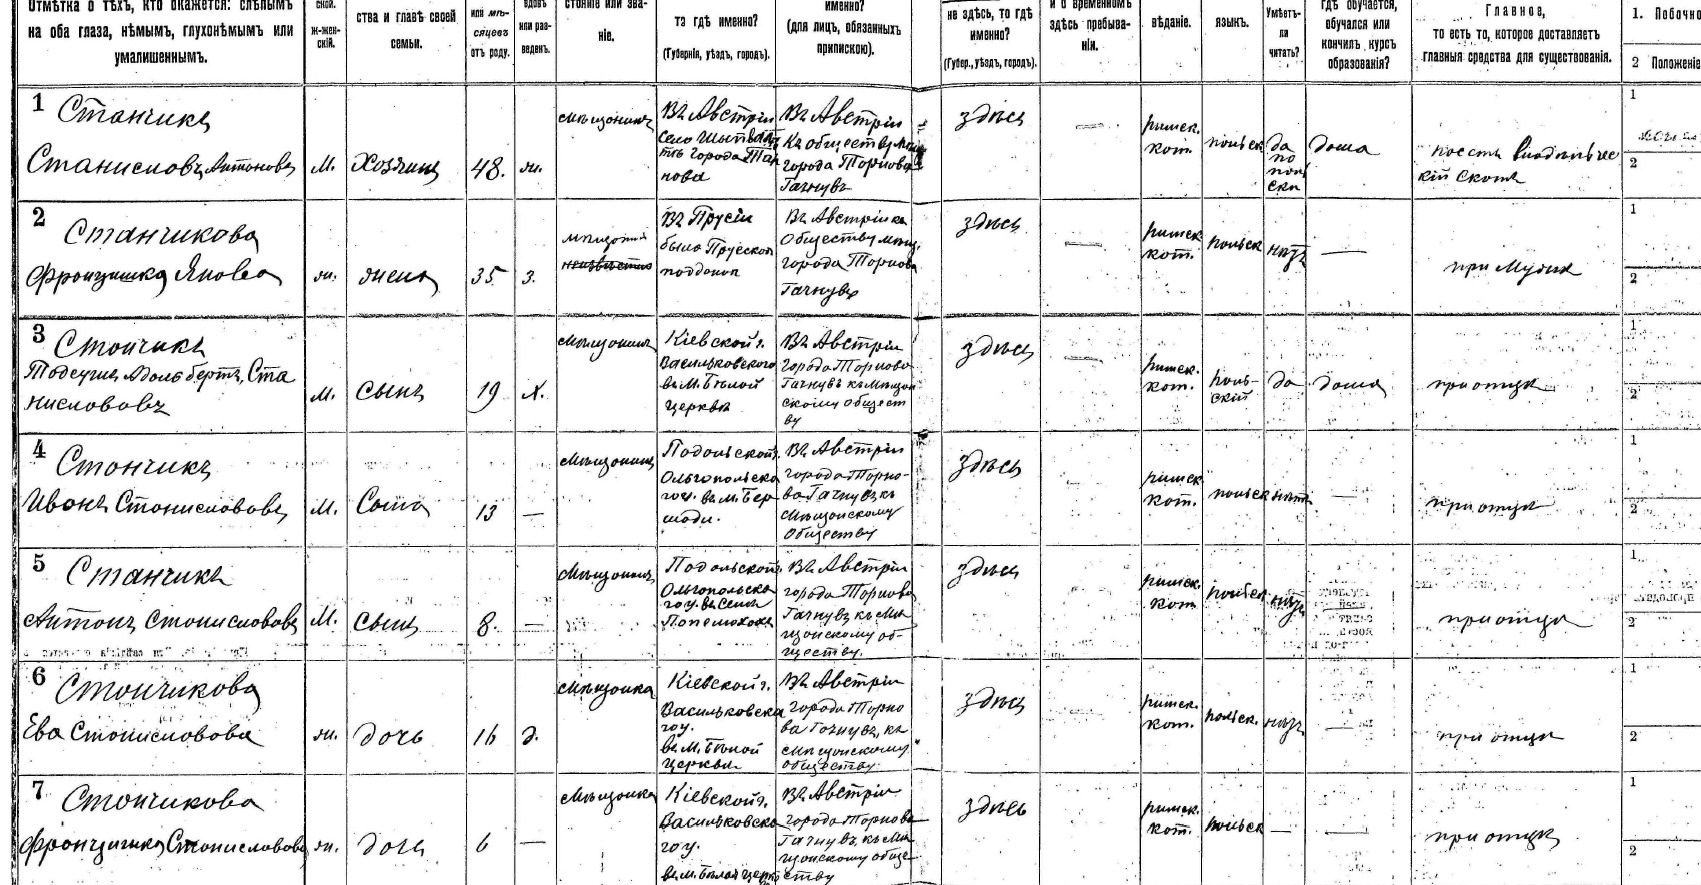 Отмѣтка о тѣхъ, кто окажется: слѣпымъ
на оба глаза, нѣмымъ, глухонѣмымъ или
умалишеннымъ.
ж-жен-
скій.
ства и главѣ своей
семьи.
или мѣ-
сяцевъ
отъ роду.
или раз-
веденъ.
стояніе или зва-
ніе.
та гдѣ именно?
(Губернія, уѣздъ, городъ).
именно?
(для лицъ, обязанныхъ
припискою).
не здѣсь, то гдѣ
именно?
(Губер., уѣздъ, городъ).
и о временномъ
здѣсь пребыва-
ніи.
вѣданіе.
языкъ.
Умѣетъ-
ли
читать?
гдѣ обучается,
обучался или
кончилъ курсъ
образованія?
Главное,
то есть то, которое доставляетъ
главныя средства для существованія.
1. Побочно
2 Положеніе
1
Станчикъ
Станиславъ Антоновъ
м.
хозяинъ
48.
ж.
мѣщанинъ
Въ Австріи
Село
города Тар
нова
Въ Австріи
Къ обществу
города Тарнова
здѣсь
римск.
кат.
польск
да
по
поль
ски
дома
скотъ
1
2
2
Станчикова
Францишка Янова
ж.
жена
35
з.
Въ Прусіи
была Прусской
поддоной
Въ Австріи къ
Обществу мѣщ.
города Тарнова
здѣсь
римск
кат.
польск
нѣтъ
—
при мужѣ
1
2
3
Станчикъ
Адольбертъ Ста
ниславовъ
м.
сынъ
19
х.
мѣщанинъ
Кіевской г.
Васильковского
въ М. Бѣлой
церкви
Въ Австріи
города Тарнова
къ мѣщан
скому общест
ву
здѣсь
римск.
кат.
поль-
скій
да
дома
при отцѣ
1
2
4
Станчикъ
Иванъ Станиславовъ
м.
Сынъ
13
—
мѣщанинъ
Подольской
Ольгопольска
го у. въ м. Бер
шади.
Въ Австріи
города Тарно-
ва къ
мѣщанскому
обществу
здѣсь
римск
кат.
польск
нѣтъ
—
при отцѣ
1
2
5
Станчикъ
Антонъ Станиславовъ
м.
сынъ
8.
—
мѣщанинъ
Подольской
Ольгопольска
го у. въ селѣ
Въ Австріи
города Тарнова
къ мѣ
щанскому об-
ществу.
здѣсь
римск.
кат
польск
нѣтъ
при отцѣ
1
2
6
Станчикова
Ева Станиславова
ж.
дочь
16
д.
мѣщанка
Кіевской г.
Васильковска
го у.
въ М. Бѣлой
церкви
Въ Австріи
города Тарно
ва къ
мѣщанскому
обществу
здѣсь
римск.
кат.
польск.
нѣтъ
—
при отцѣ
1
2
7
Станчикова
Францишка Станиславова
ж.
дочь
6
—
мѣщанка
Кіевской г.
Васильковска
го у.
въ м. Бѣлой церк
Въ Австріи
города Тарнова
къ мѣ
щанскому обще
ству
здѣсь
римск.
кат.
польск
—
—
при отцѣ
1
2